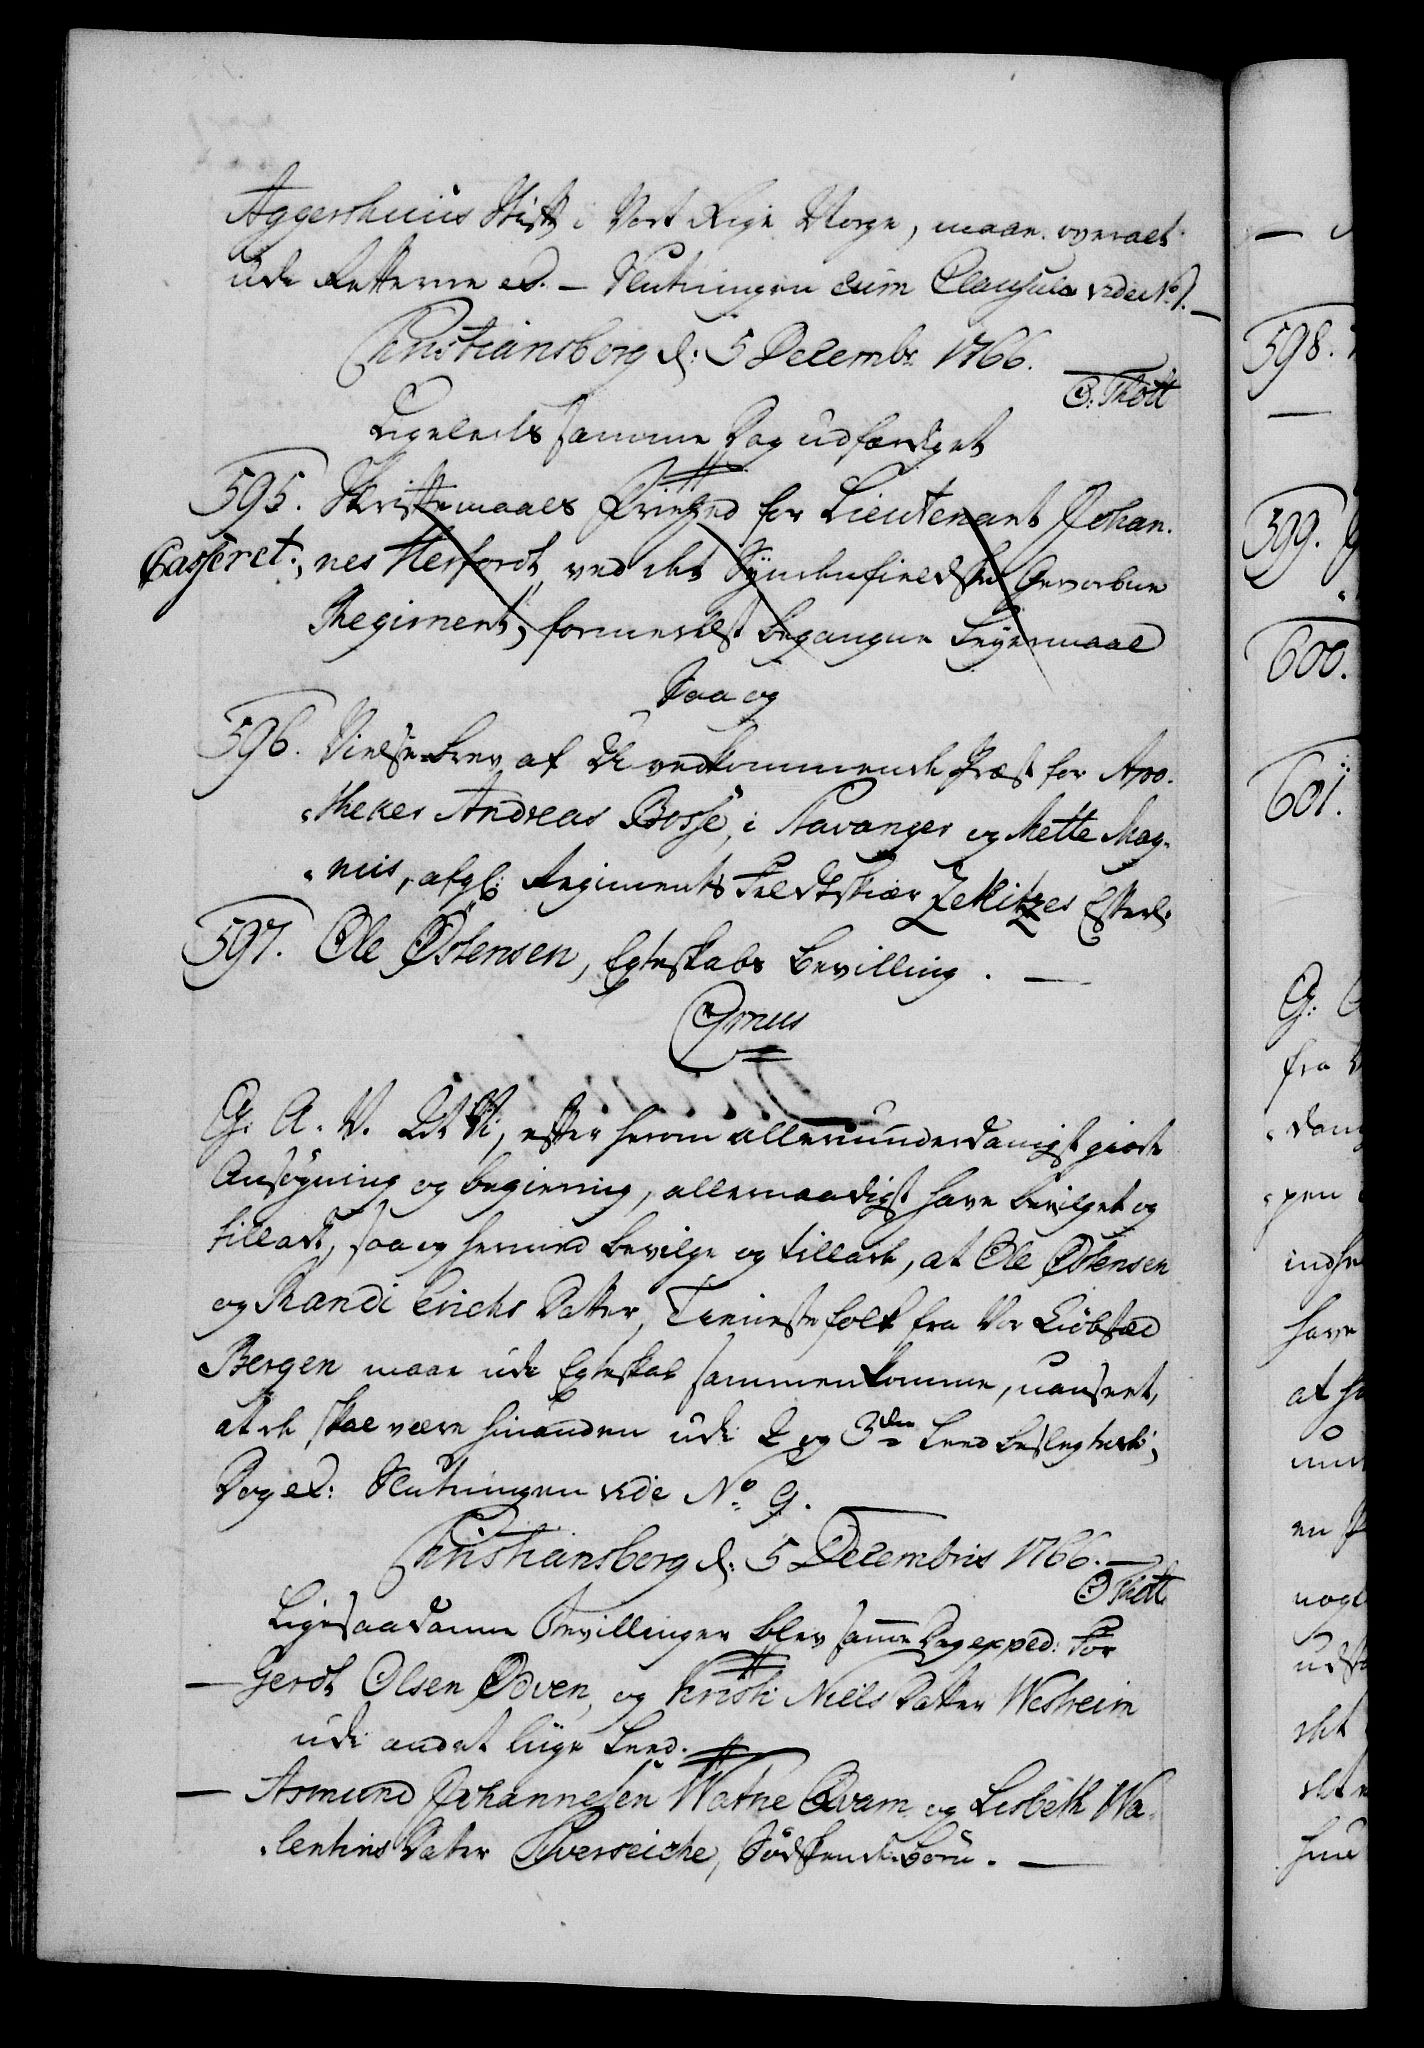 Aggershuus Stift i Vort Rige Norge, maae overalt
udi Retterne etc. — Slutningen cum Clausula vide No 7. —
Christiansborg d: 5 Decembr 1766.
O: Thott
Ligeleds samme Dag udfærdiget
595. Skriftemaals Friehed for Lieutenant Johan-
Casseret: nes Herfordt, ved det Syndenfieldske Gevorbne
Regiment, formedelst begangne Leyermaal
Saa og
596. Vielse-Brev af De vedkommende Præst for Apo-
theker Andreas Bosse, i Stavanger og Mette Mag-
nus, afg: Regiments Feldtskiær Zekitzes Efterl:
597. Ole Østensen, Egteskabs Bevilling. —
Bergens
G: A. V. At Vi, efter herom allerunderdanigst giorte
Ansøgning og begiering, allernaadigst have bevilget og
tilladt, saa og hermed bevilge og tillade, at Ole Østensen
og Randi Erichs Datter, Tienestefolk fra Vor Kiøbstæd
Bergen maae udi Egteskab sammenkomme, uanseet,
at de skal være hinanden udi 2 og 3die Leed beslegtede;
Dog etc: Slutningen vide No 9.
Christiansborg d: 5 Decembris 1766. —
O Thott
Ligesaadanne Bevillinger blev samme Dag exped: For
— Gerdt Olsen Ødven, og Kristi Niels Datter Westreim
udi andet liige Leed.
— Asmund Johannesen Watne Qvam og Lisbeth Wa-
lentins Datter Sverseiche, Sødskendebørn. —
598.
599.
600.
601.
G:
fra
indhe
have
at
en
udst
det